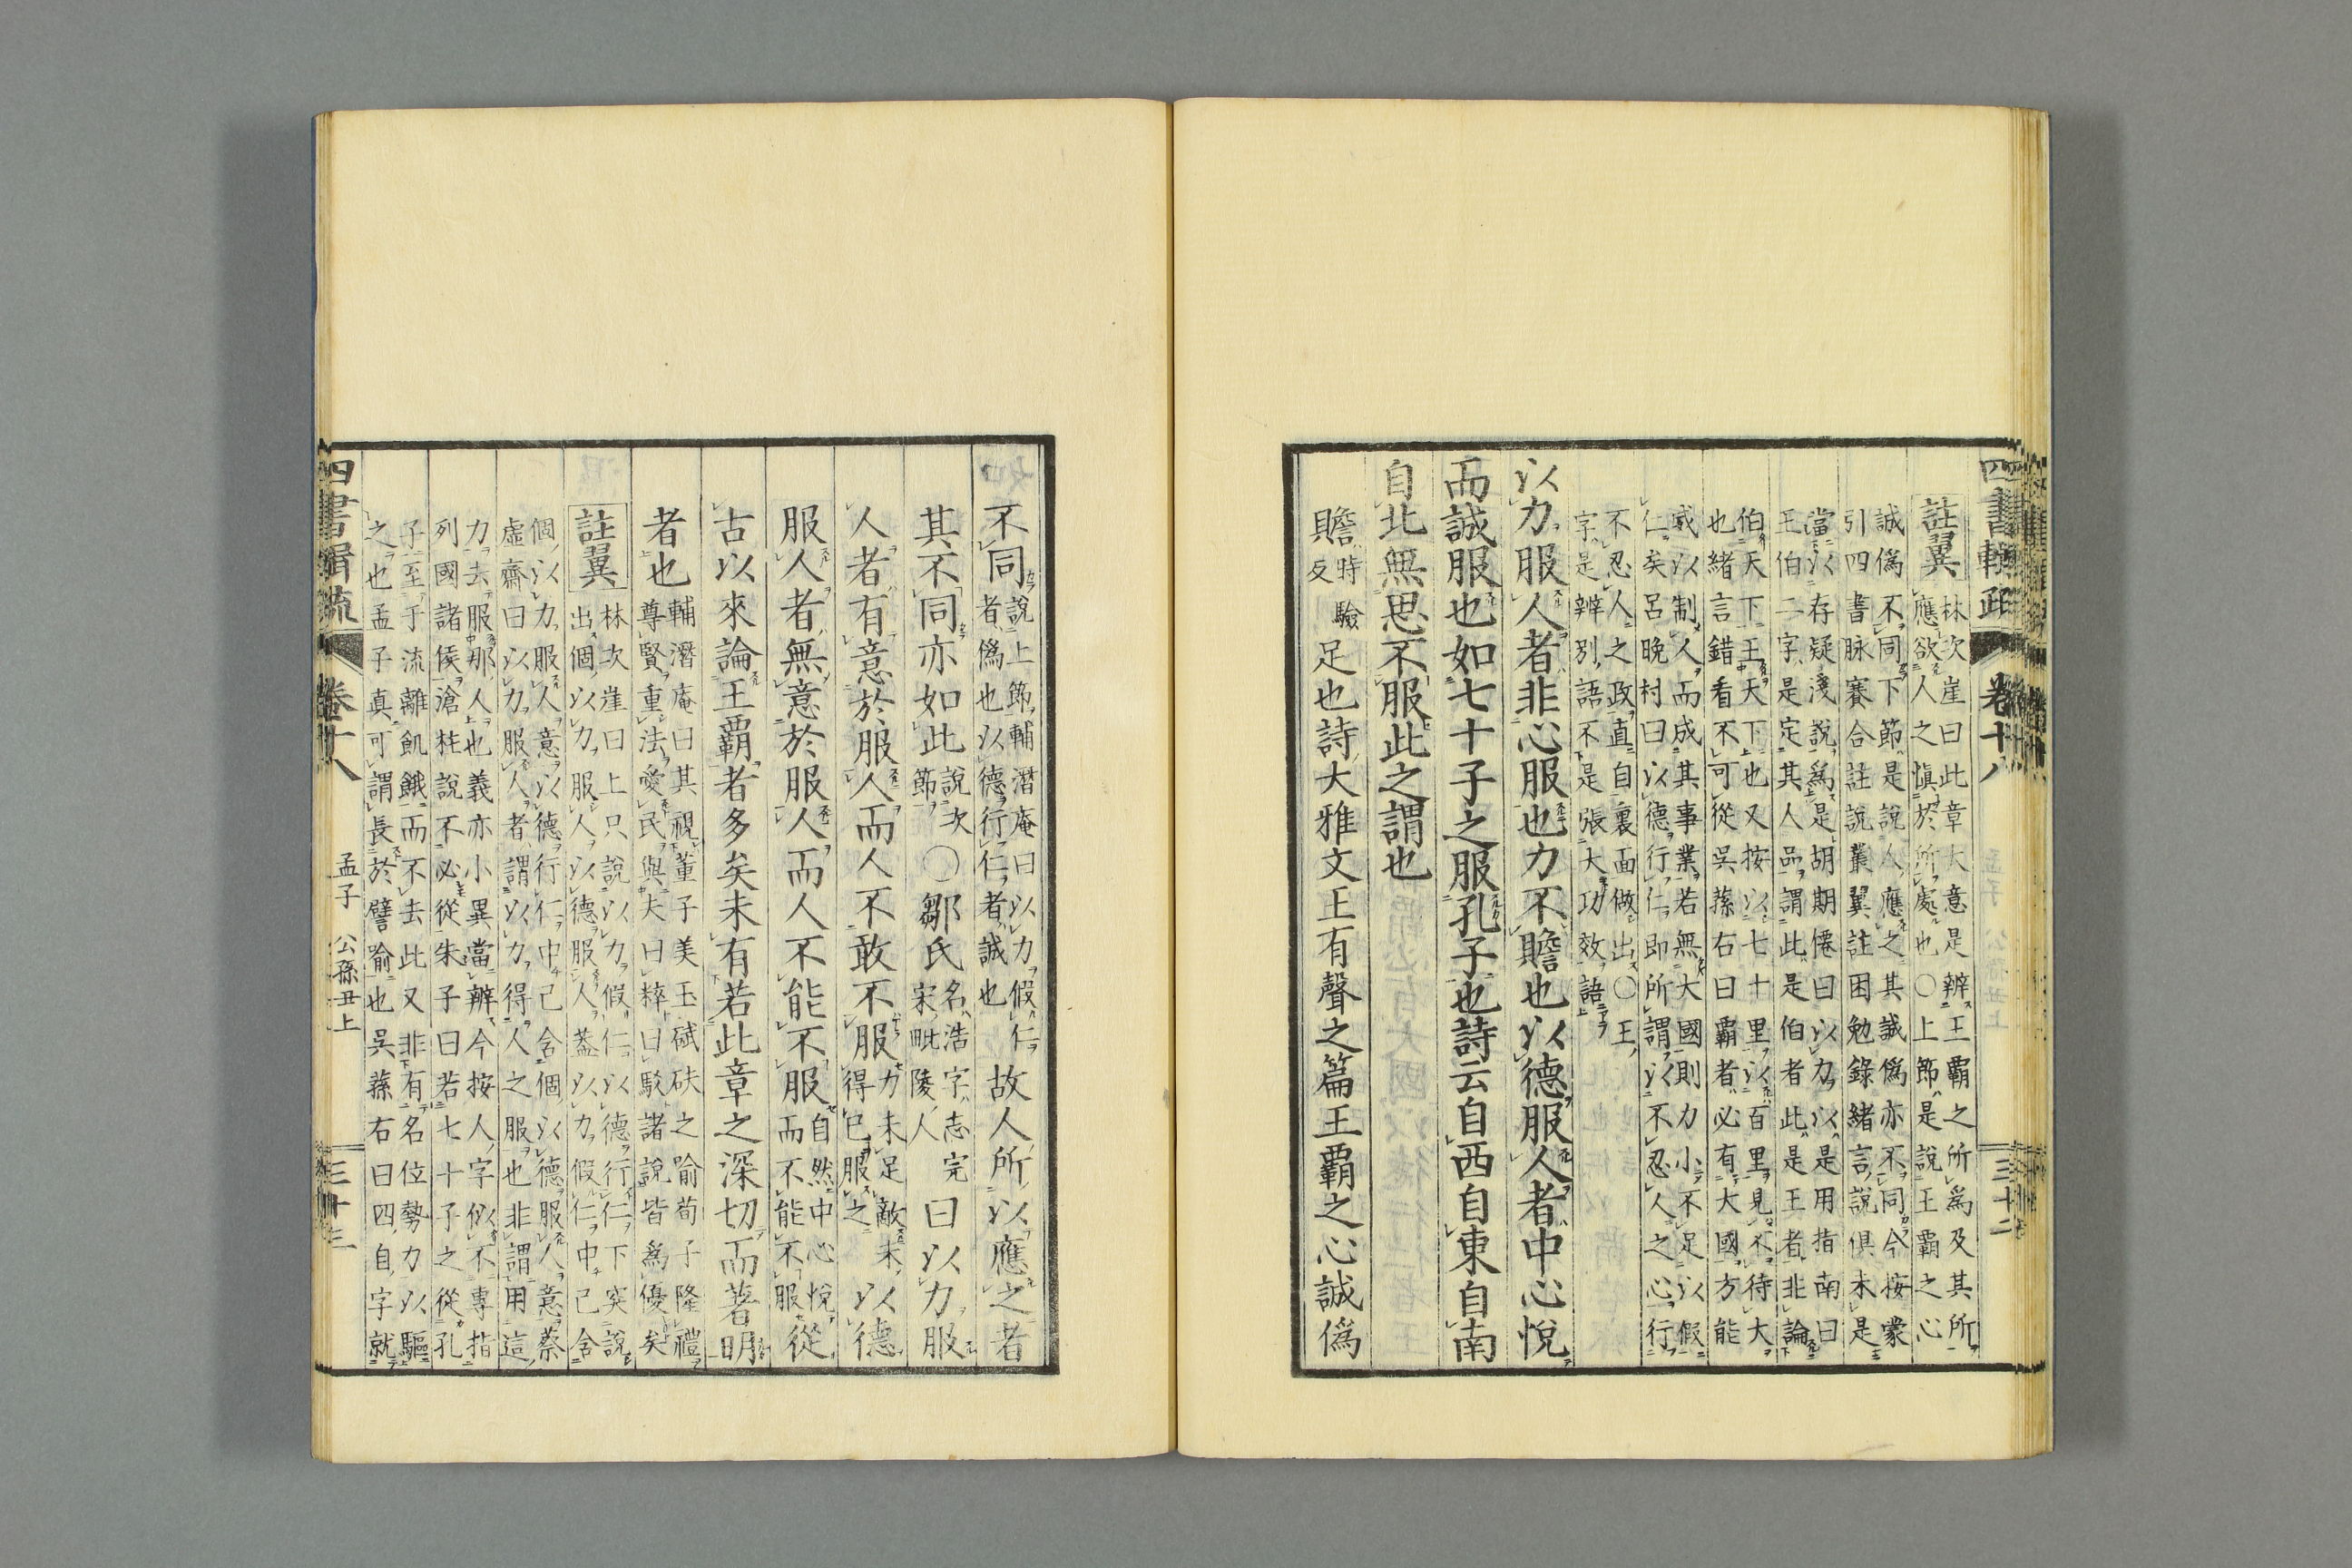 註翼
林次崖曰此章大意是辨王霸之所爲及其所
應欲人之愼於所處也○上節是説王霸之心
誠僞不同下節是説人應之其誠僞亦不同今按蒙
引四書脉賽合註説叢翼註困勉錄緒言説俱未是
當以存疑淺説爲是胡期僊曰以力以是用指南曰
王伯二字是定其人品謂此是伯者此是王者非論
伯天下王天下也又按以七十里以百里見不待大
也緒言錯看不可從吳蓀右曰霸者必有大國方能
威以制人而成其事業若無大國則力小不足以假
仁矣呂晩村曰以德行仁即所謂以不忍人之心行
不忍人之政直自裏面做出○王
字是辨別語不是張大功效語
以力服人者非心服也力不贍也以德服人者中心悅
而誠服也如七十子之服孔子也詩云自西自東自南
自北無思不服此之謂也
贍時驗反足也詩大雅文王有聲之篇王霸之心誠僞
四書輯疏 卷十八 三十二
不同説上節輔潛庵曰以力假仁者僞也以德行仁者誠也故人所以應之者
其不同亦如此説次節○鄒氏名浩字志完宋毗陵人曰以力服
人者有意於服人而人不敢不服力未足敵未得已服之以德
服人者無意於服人而人不能不服自然中心悅而不能不服從
古以來論王霸者多矣未有若此章之深切而著明
者也輔潛庵曰其視董子美玉碔砆之喻荀子隆禮尊賢重法愛民與夫曰粹曰駁諸説皆爲優矣
註翼
林次崖曰上只説以力假仁以德行仁下突説
出個以力服人以德服人蓋以力假仁中已含
個以力服人意以德行仁中已含個以德服人意蔡
虛齋曰以力服人者謂以力得人之服也非謂用這
力去服那人也義亦小異當辨今按人字似不專指
列國諸侯滄柱説不必從朱子曰若七十子之從孔
子至于流離飢餓而不去此又非有名位勢力以驅
之也孟子眞可謂長於譬喻也吳蓀右曰四自字就
四書輯疏 卷十八 孟子 公孫丑上 三十三